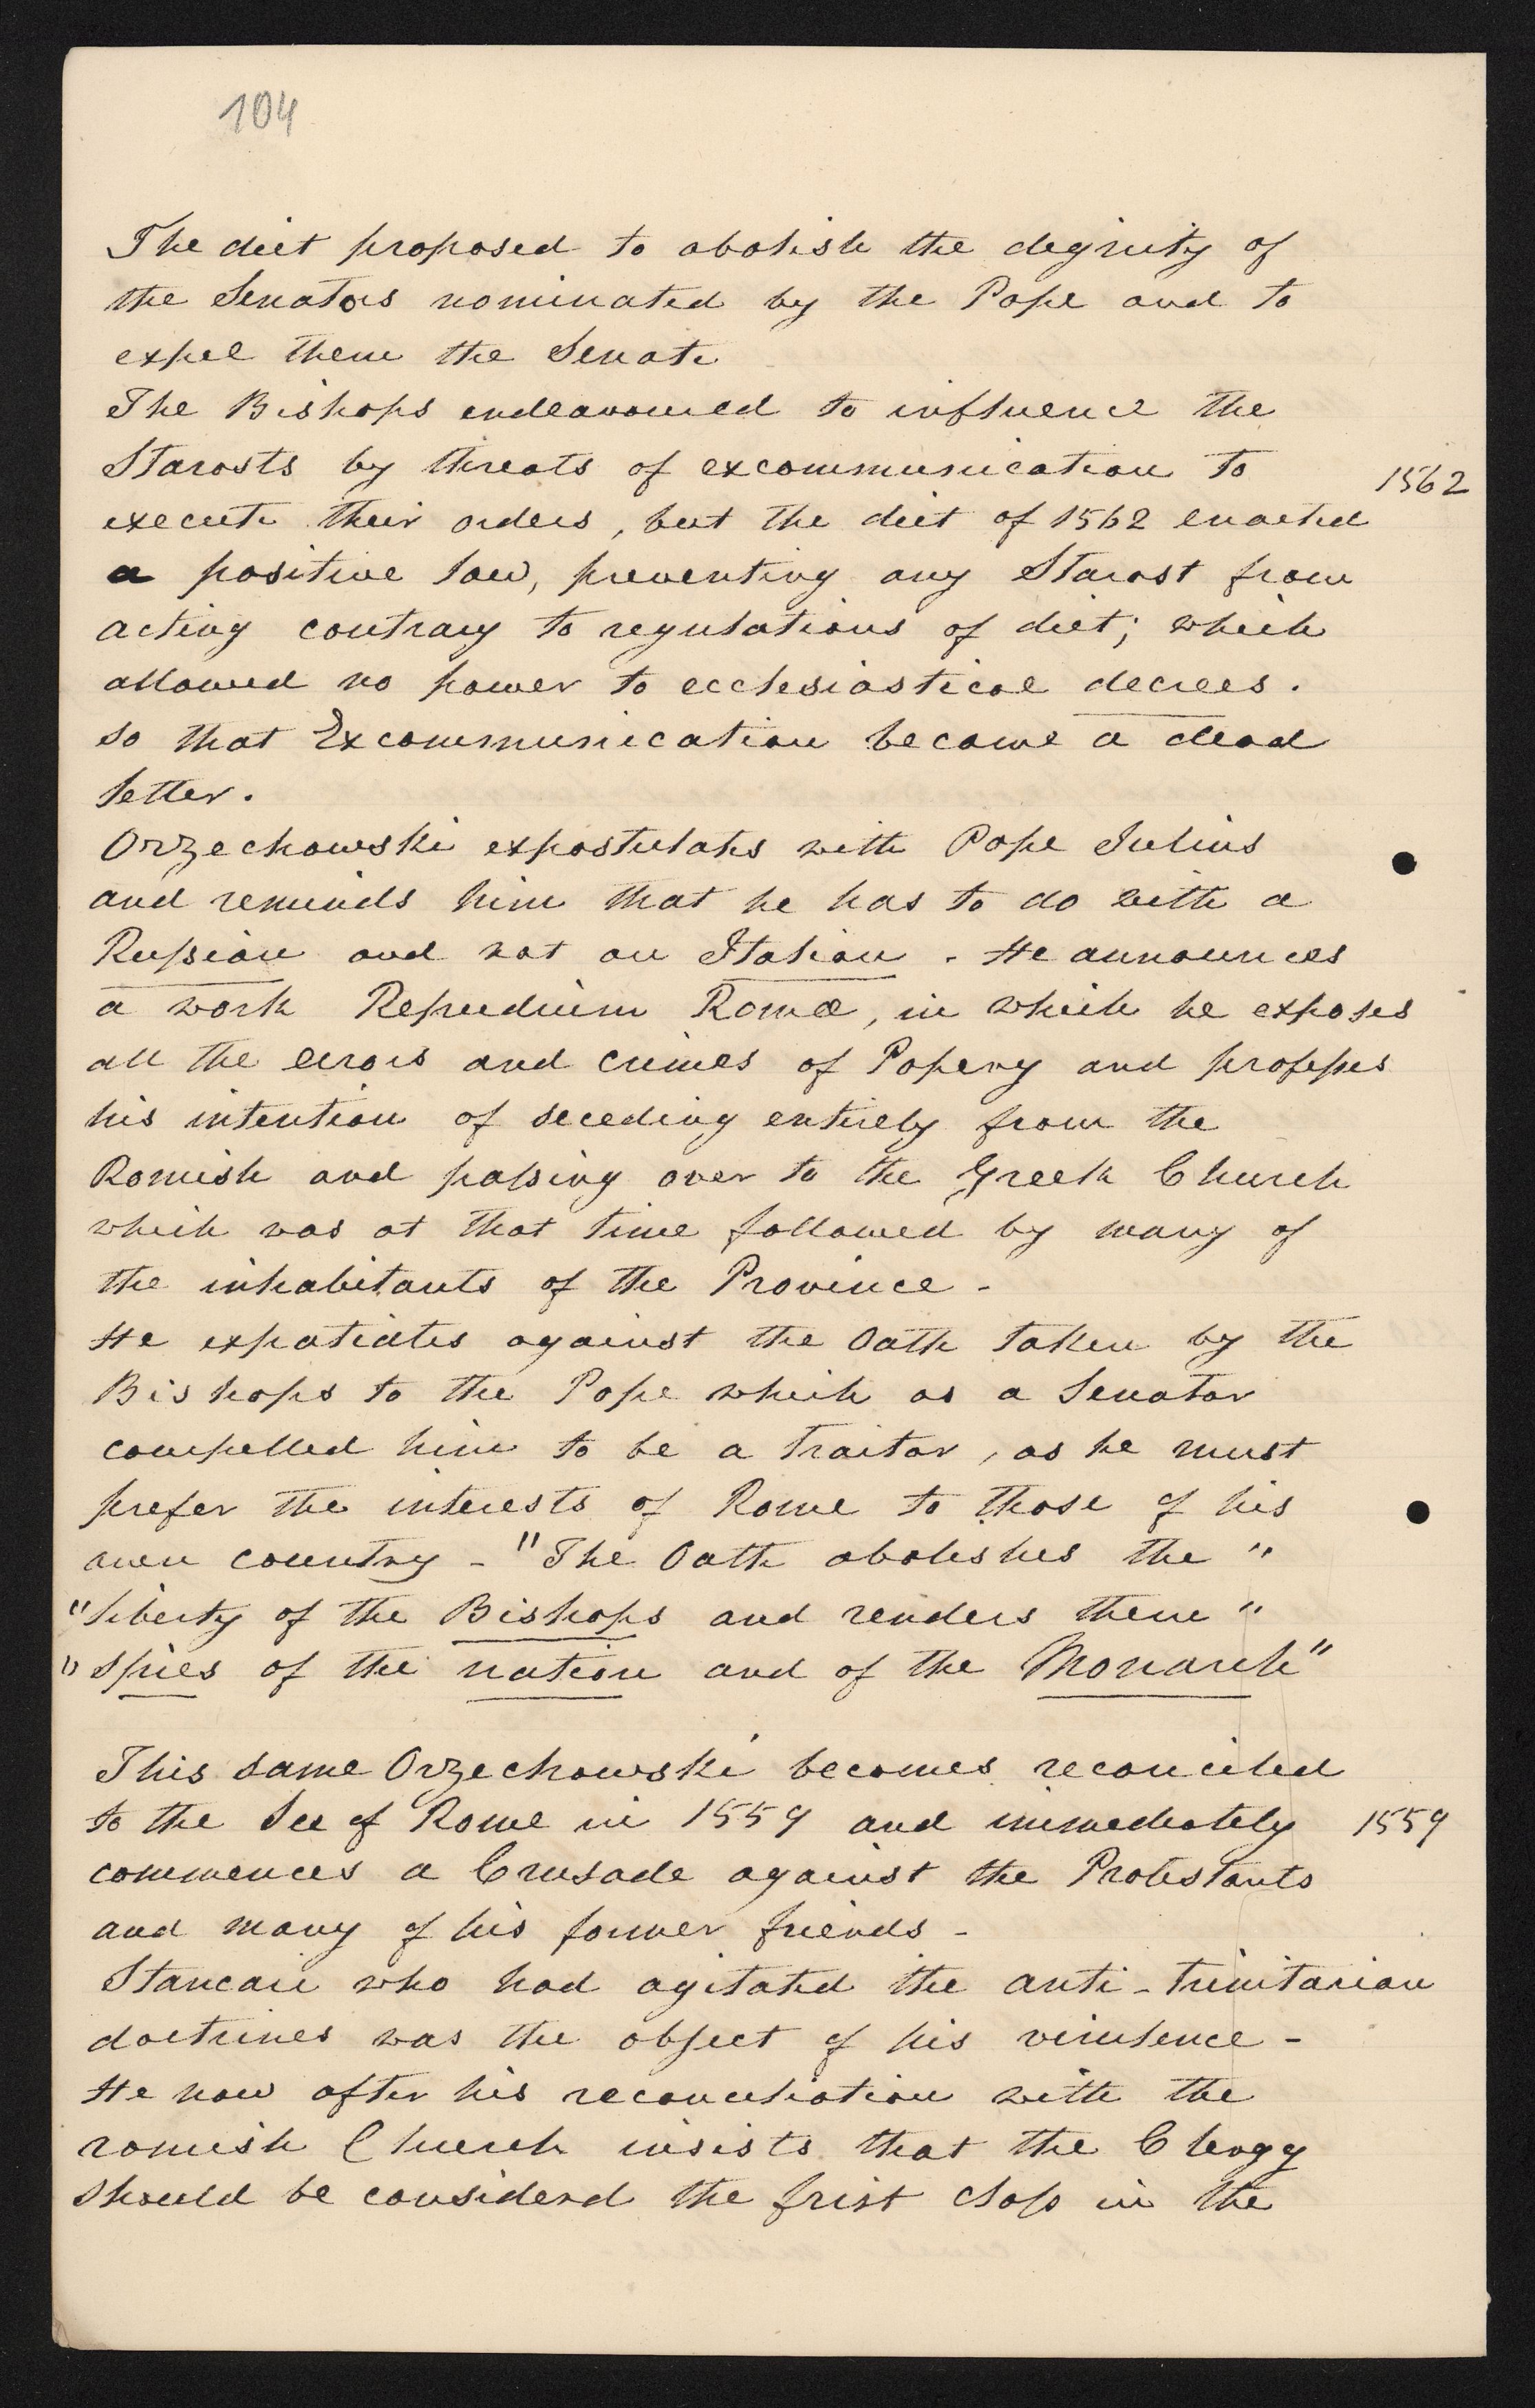 104
The diet proposed to abolish the degnity of
the Senators nominated by the Pope and to
expel them the Senate
The Bishops endeavoured to influence the
Starosts by threats of excommunication to
1562
execute their orders, but the diet of 1562 enacted
a positive law, preventing any Starost from
acting contrary to regulations of diet; which
allowed no power to ecclesiastical decrees.
so that Excommunication became a dead
letter.
Orzechowski expostulates with Pope Julius
and reminds him that he has to do with a
Russian and not an Italian. He announces
a work Repudium Romæ, in which he exposes
all the errors and crimes of Popery and professes
his intention of seceding entirely from the
Romish and passing over to the Greek Church
which was at that time followed by many of
the inhabitants of the Province -
He expatiates against the Oath taken by the
Bishops to the Pope which as a Senator
compelled him to be a Traitor, as he must
prefer the interests of Rome to those of his
own country - "The Oath abolishes the "
"liberty of the Bishops and renders them "
" spies of the nation and of the Monarch"
This same Orzechowski becomes reconciled
to the See of Rome in 1559 and immediately 1559
commences a Crusade against the Protestants
and many of his former friends -
Stancari who had agitated the anti-trinitarian
doctrines was the object of his virulence -
He now after his reconciliation with the
romish Church insists that the Clergy
should be considerd the frist class in the